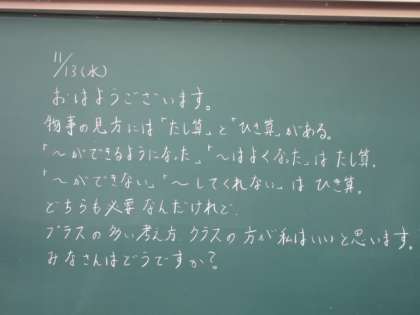 11/13(水)
おはようございます。
物事の見方には「たし算」と「ひき算」がある。
「～ができるようになった」「～はよくなった」はたし算。
「～ができない」「～してくれない」はひき算。
どちらも必要なんだけれど、
プラスの多い考え方 クラスの方が私はいいと思います。
みなさんはどうですか？